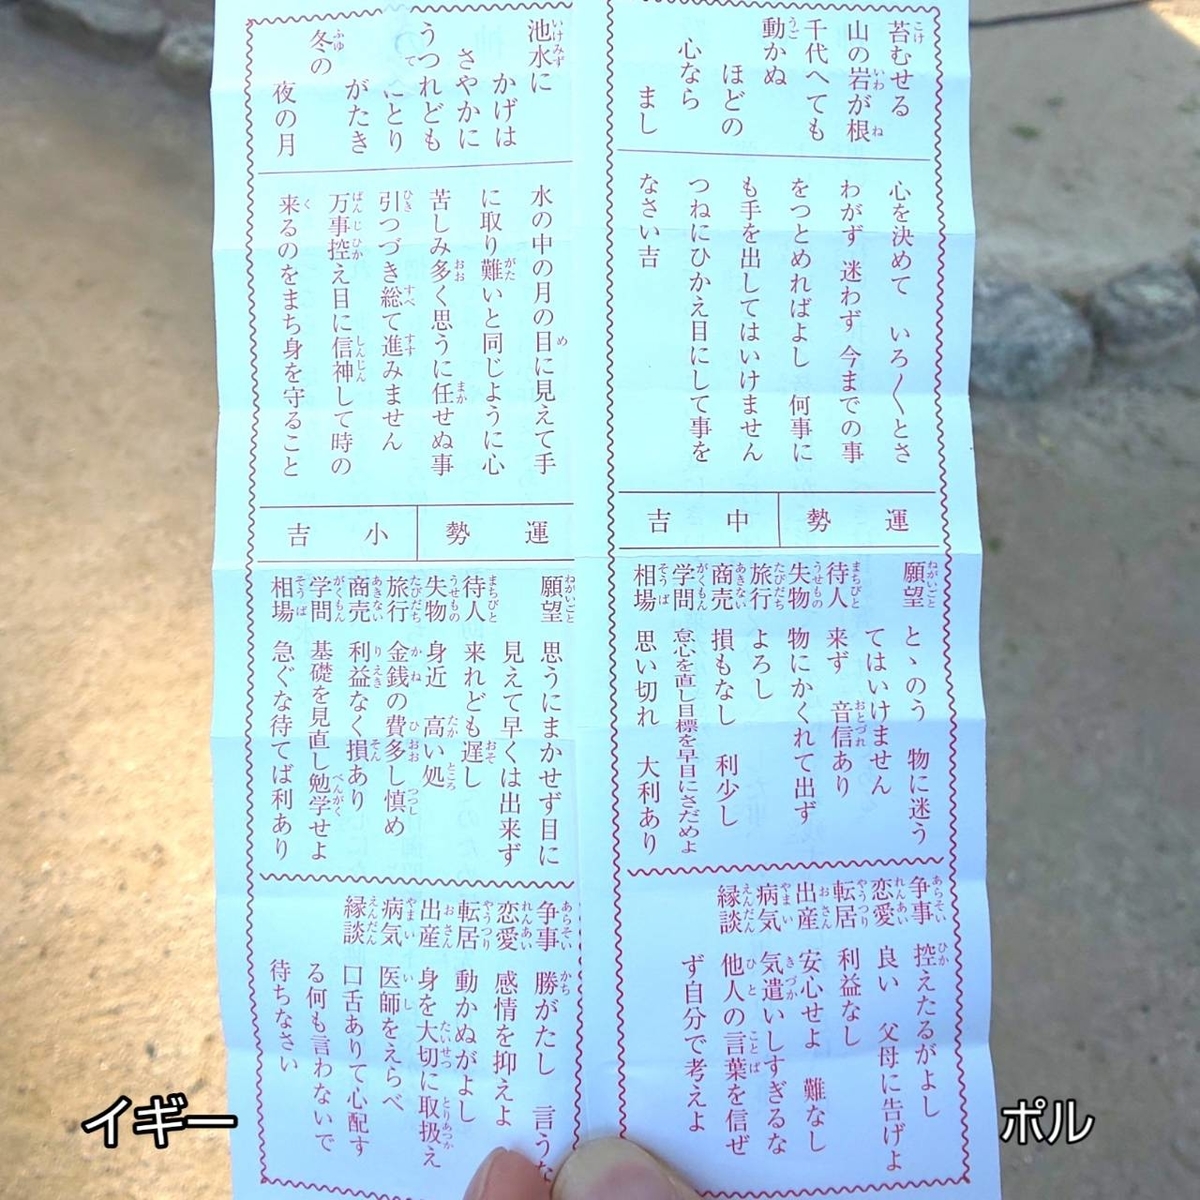 苔むせる
山の岩が根
千代へても
動かぬ
ほどの
心なら
まし
心を決めて いろ〳〵とさ
わがず 迷わず 今までの事
をつとめればよし 何事に
も手を出してはいけません
つねにひかえ目にして事を
なさい吉
運勢 中吉
願望 とゝのう 物に迷う
てはいけません
待人 来ず 音信あり
失物 物にかくれて出ず
旅行 よろし
商売 損もなし 利少し
学問 怠心を直し目標を早目にさだめよ
相場 思い切れ 大利あり
争事 控えたるがよし
恋愛 良い 父母に告げよ
転居 利益なし
出産 安心せよ 難なし
病気 気遣いしすぎるな
縁談 他人の言葉を信ぜ
ず自分で考えよ
池水に
かげは
さやかに
うつれども
てにとり
がたき
冬の
夜の月
水の中の月の目に見えて手
に取り難いと同じように心
苦しみ多く思うに任せぬ事
引つづき総て進みません
万事控え目に信神して時の
来るのをまち身を守ること
運勢 小吉
願望 思うにまかせず目に
見えて早くは出来ず
待人 来れども遅し
失物 身近 高い処
旅行 金銭の費多し慎め
商売 利益なく損あり
学問 基礎を見直し勉学せよ
相場 急ぐな待てば利あり
争事 勝がたし 言うな
恋愛 感情を抑えよ
転居 動かぬがよし
出産 身を大切に取扱え
病気 医師をえらべ
縁談 口舌ありて心配す
る何も言わないで
待ちなさい
イギー
ポル